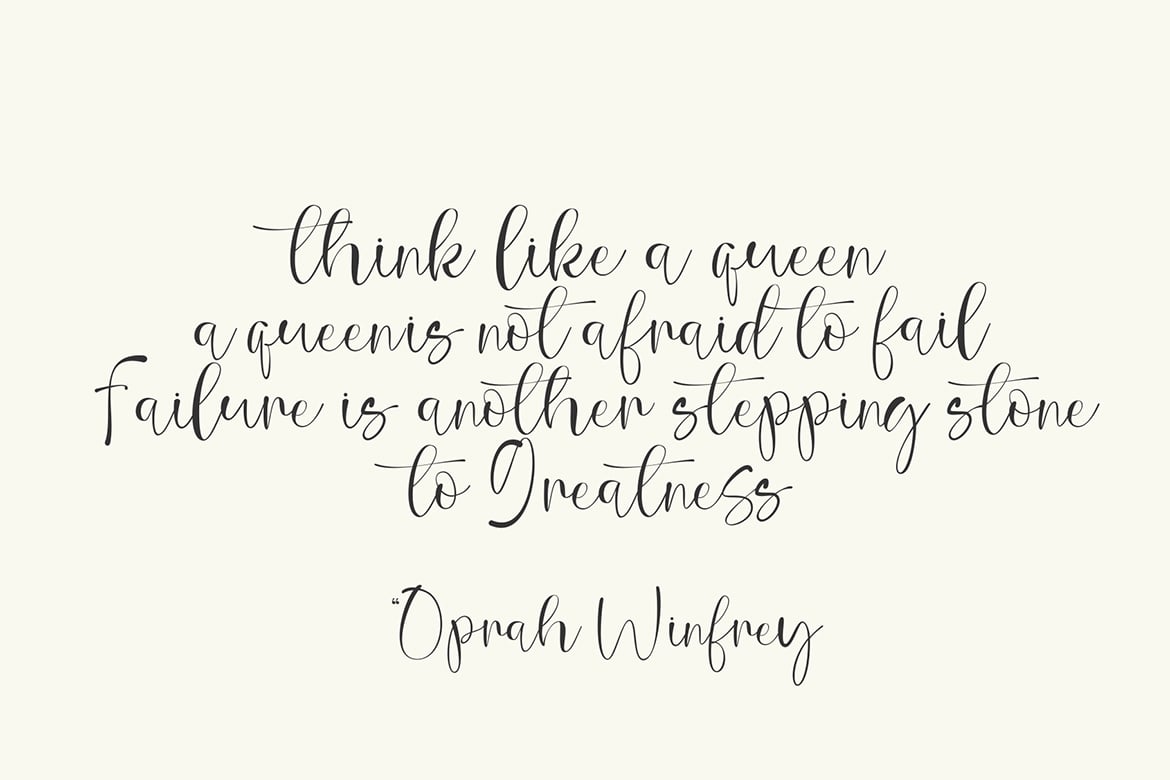 think like a queen
a queenis not afraid to fail
Failure is another stepping stone
to Greatness
“Oprah Winfrey